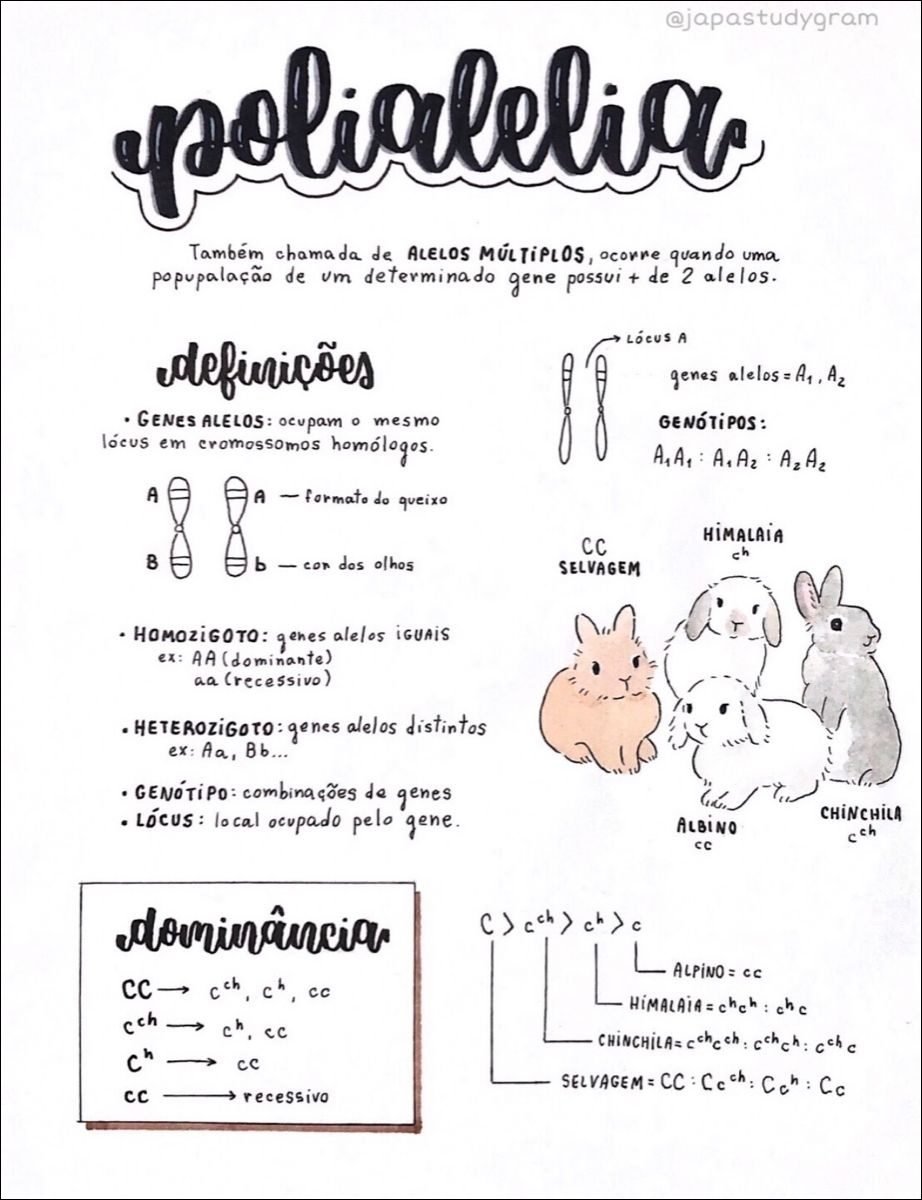 @japastudygram
polialelia
Também chamada de ALELOS MÚLTIPLOS, ocorre quando uma
popupalação de um determinado gene possui + de 2 alelos.
definições
• GENES ALELOS: ocupam o mesmo
lócus em cromossomos homólogos.
A A — formato do queixo
B b — cor dos olhos
• HOMOZIGOTO: genes alelos iGUAIS
ex: AA (dominante)
aa (recessivo)
• HETEROZIGOTO: genes alelos distintos
ex: Aa, Bb...
• GENÓTIPO: combinações de genes
• LÓCUS: local ocupado pelo gene.
LÓCUS A
genes alelos = A₁, A₂
GENÓTIPOS:
A₁A₁ : A₁A₂ : A₂A₂
CC
SELVAGEM
HIMALAIA
cʰ
ALBINO
cc
CHINCHILA
cᶜʰ
dominância
CC → cᶜʰ, cʰ, cc
cᶜʰ → cʰ, cc
Cʰ → cc
cc → recessivo
C > cᶜʰ > cʰ > c
ALPINO = cc
HIMALAIA = cʰcʰ : cʰc
CHINCHILA = cᶜʰcᶜʰ : cᶜʰcʰ : cᶜʰc
SELVAGEM = CC : Ccᶜʰ : Ccʰ : Cc